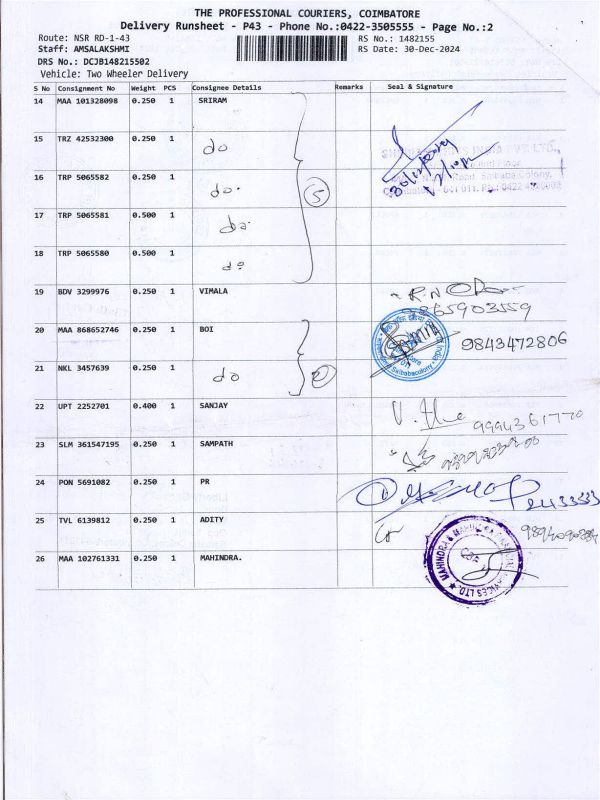 THE PROFESSIONAL COURIERS, COIMBATORE
Delivery Runsheet - P43 - Phone No.:0422-3505555 - Page No.:2
Route: NSR RD-1-43 RS No.: 1482155
Staff: AMSALAKSHMI RS Date: 30-Dec-2024
DRS No.: DCJB148215502
Vehicle: Two Wheeler Delivery
S No Consignment No Weight PCS Consignee Details Remarks Seal & Signature
14 MAA 101328098 0.250 1 SRIRAM
15 TRZ 42532300 0.250 1 do
16 TRP 5065582 0.250 1 do 5
17 TRP 5065581 0.500 1 do
18 TRP 5065580 0.500 1 do
19 BDV 3299976 0.250 1 VIMALA
9865903559
20 MAA 868652746 0.250 1 BOI 9843472806
21 NKL 3457639 0.250 1 do 2
22 UPT 2252701 0.400 1 SANJAY
23 SLM 361547195 0.250 1 SAMPATH
24 PON 5691082 0.250 1 PR
25 TVL 6139812 0.250 1 ADITY
26 MAA 102761331 0.250 1 MAHINDRA.